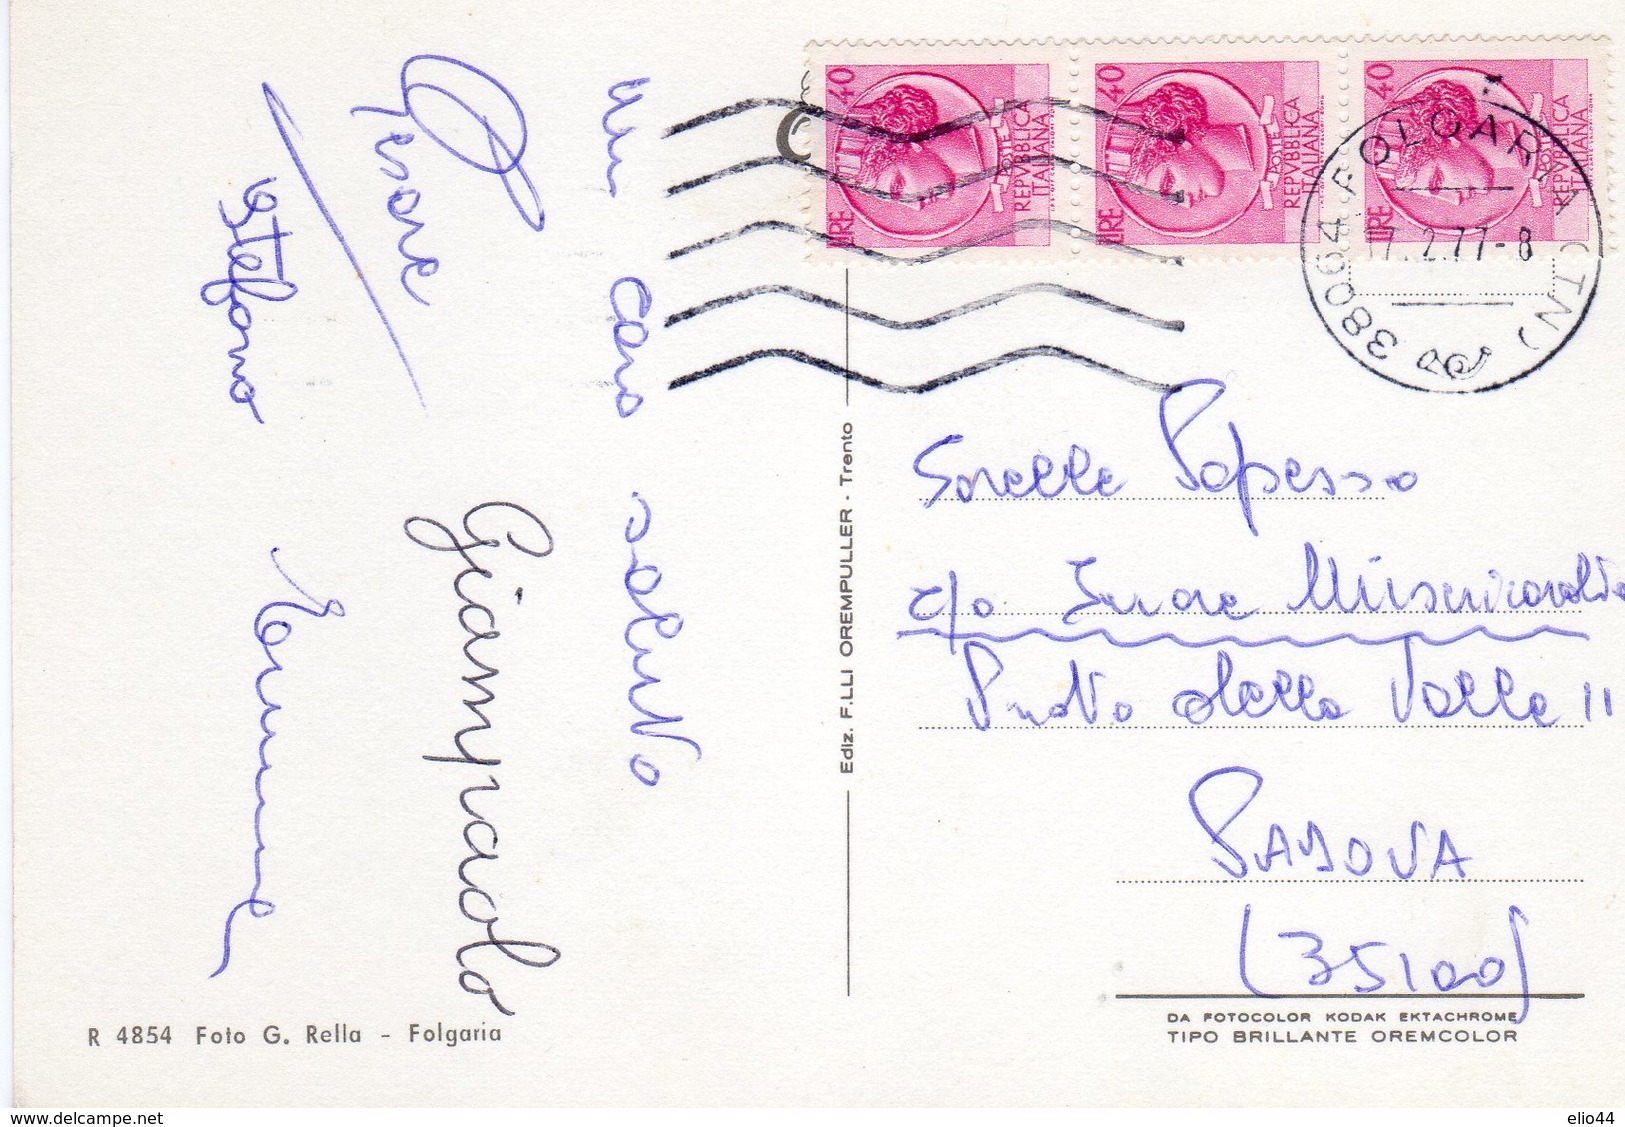 un caro saluto
Cesare
Giampaolo
Stefano
LIRE 40
POSTE
REPVBBLICA
ITALIANA
LIRE 40
POSTE
REPVBBLICA
ITALIANA
LIRE 40
REPVBBLICA
ITALIANA
38064 FOLGARIA (TN)
17.2.77-8
Sorelle Papesso
c/o Suore Misericordia
Prato della Valle 11
PADOVA
(35100)
Ediz. F.LLI OREMPULLER - Trento
R 4854 Foto G. Rella - Folgaria
DA FOTOCOLOR KODAK EKTACHROME
TIPO BRILLANTE OREMCOLOR
delcampe.net
elio44